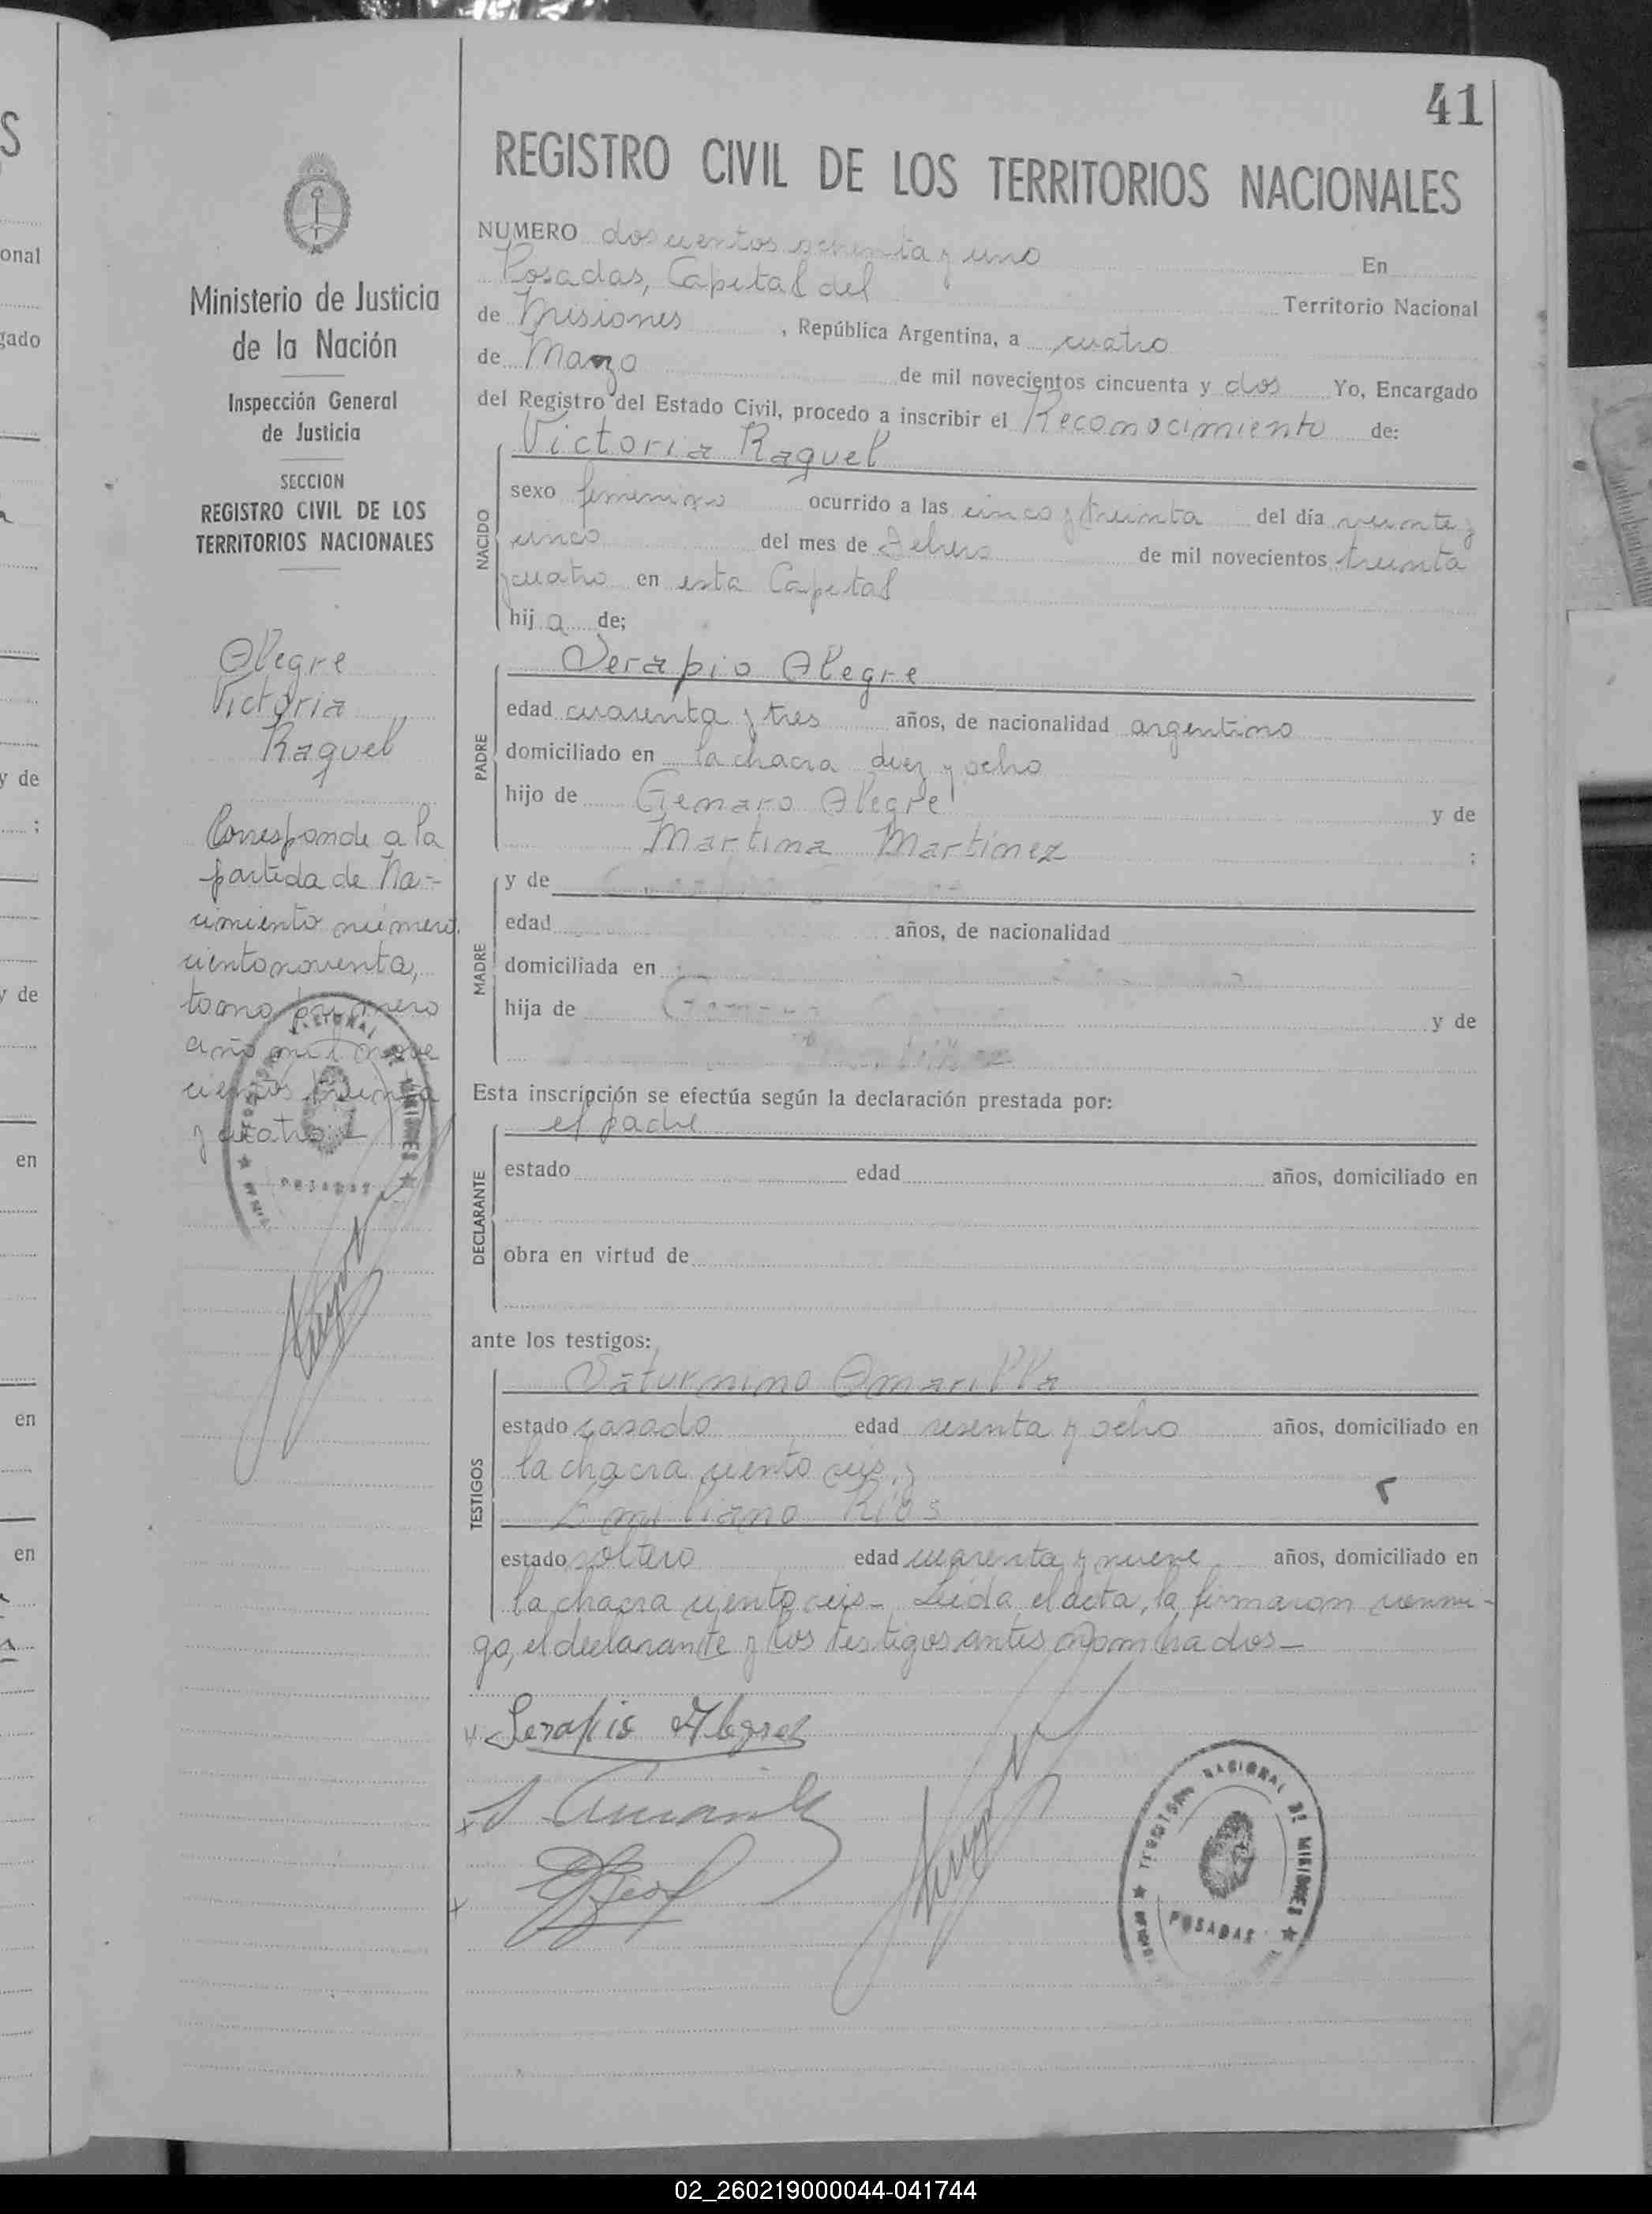 41
REGISTRO CIVIL DE LOS TERRITORIOS NACIONALES
NUMERO doscientos ochenta y uno En
Posadas, Capital del Territorio Nacional
de Misiones, República Argentina, a cuatro
de Marzo de mil novecientos cincuenta y dos Yo, Encargado
del Registro del Estado Civil, procedo a inscribir el Reconocimiento de:
Victoria Raquel
NACIDO
sexo femenino ocurrido a las cinco y treinta del día veinte y
cinco del mes de Febrero de mil novecientos treinta
y cuatro en esta Capital
hija de;
Serapio Alegre
PADRE
edad cuarenta y tres años, de nacionalidad argentino
domiciliado en la chacra diez y ocho
hijo de Genaro Alegre y de
Martina Martínez ;
MADRE
y de
edad años, de nacionalidad
domiciliada en
hija de y de
Esta inscripción se efectúa según la declaración prestada por:
el padre
DECLARANTE
estado edad años, domiciliado en
obra en virtud de
ante los testigos:
Saturnino Amarilla
TESTIGOS
estado casado edad sesenta y ocho años, domiciliado en
la chacra ciento seis, y
Emiliano Ríos
estado soltero edad cuarenta y nueve años, domiciliado en
la chacra ciento seis_ Leida el acta, la firmaron conmi-
go, el declarante y los testigos antes nombrados_
Serapio Alegre
TERRITORIO NACIONAL DE MISIONES
POSADAS
Ministerio de Justicia
de la Nación
Inspección General
de Justicia
SECCION
REGISTRO CIVIL DE LOS
TERRITORIOS NACIONALES
Alegre
Victoria
Raquel
Corresponde a la
partida de Na-
cimiento número
ciento noventa,
tomo primero
año mil nove
cientos treinta
y cuatro_
POSADAS
S
onal
gado
y de
;
y de
en
en
en
02_260219000044-041744